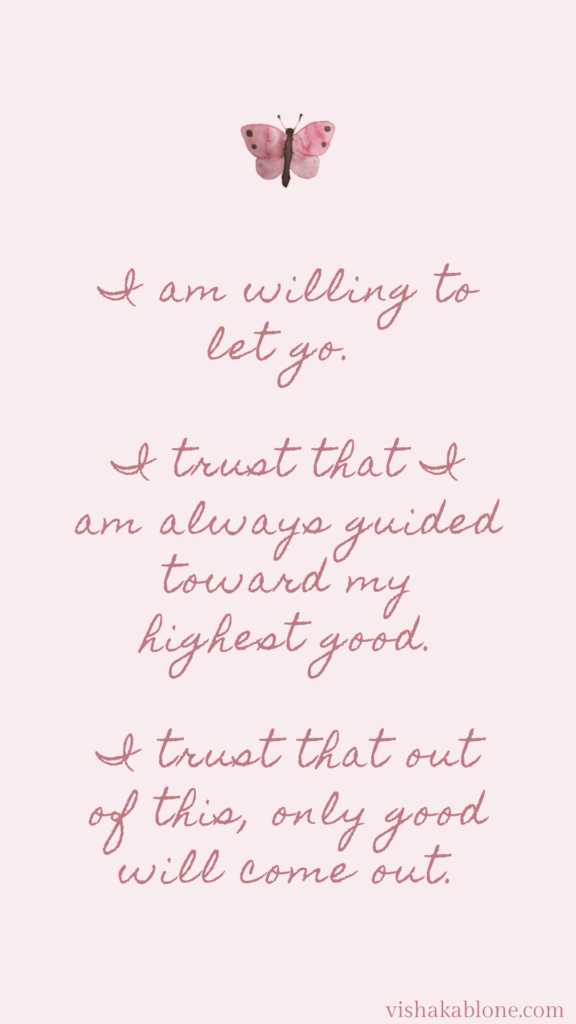 I am willing to
let go.
I trust that I
am always guided
toward my
highest good.
I trust that out
of this, only good
will come out.
vishakablone.com